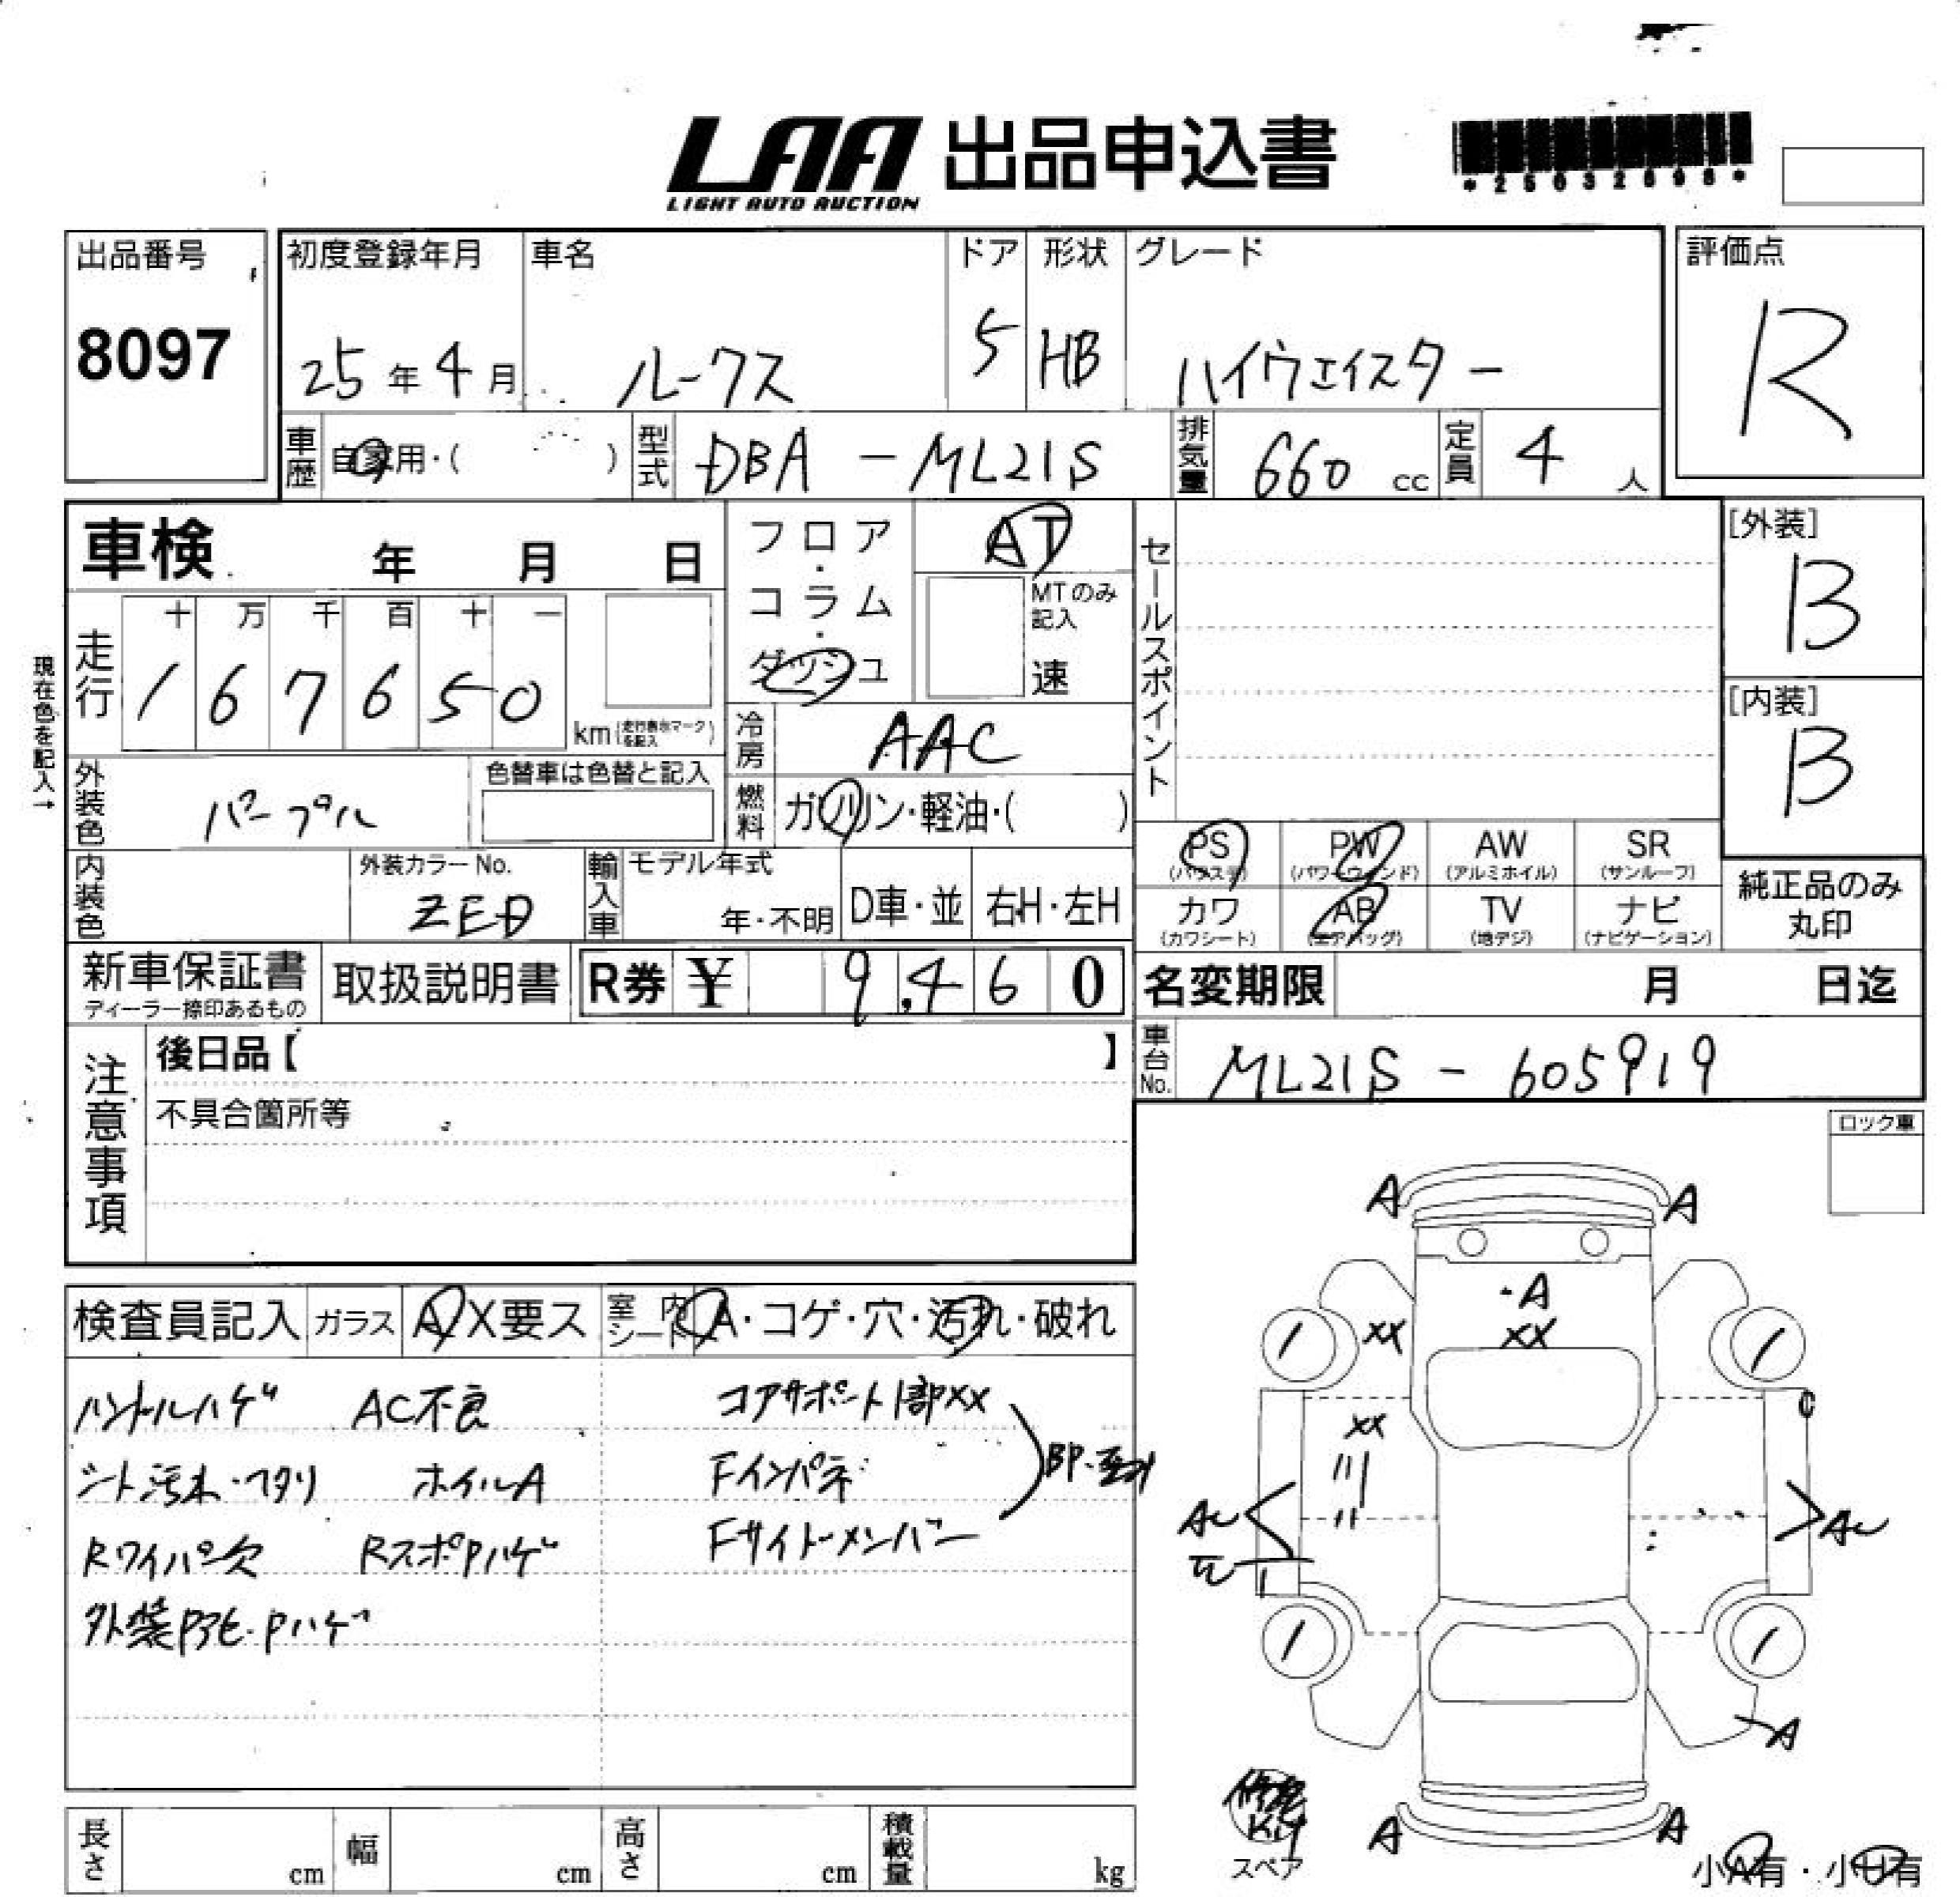 LAA 出品申込書
LIGHT AUTO AUCTION
出品番号
8097
初度登録年月
25年4月
車名
ルークス
ドア
5
形状
HB
グレード
ハイウェイスター
評価点
R
車歴
自家用・( )
型式
DBA-ML21S
排気量
660 cc
定員
4 人
車検 年 月 日
フロア・コラム・ダッシュ
AT
MTのみ記入
速
セールスポイント
[外装]
B
[内装]
B
現在色を記入→
走行
十 万 千 百 十 一
1 6 7 6 5 0
km(走行表示マークを記入)
冷房
AAC
外装色
パープル
色替車は色替と記入
燃料
ガソリン・軽油・( )
PS PW AW SR
(パワステ) (パワーウィンド) (アルミホイル) (サンルーフ)
カワ AB TV ナビ
(カワシート) (エアバッグ) (地デジ) (ナビゲーション)
純正品のみ丸印
内装色
外装カラーNo.
ZED
輸入車
モデル年式
年・不明
D車・並
右H・左H
新車保証書
ディーラー捺印あるもの
取扱説明書
R券 ¥ 9,460
名変期限 月 日迄
車台No.
ML21S-605919
注意事項
後日品【 】
不具合箇所等
ロック車
検査員記入
ガラス
A X要ス
室内シート
A・コゲ・穴・汚れ・破れ
ハンドルハゲ AC不良 コアサポート1部XX
シート汚れ・ヘタリ ホイルA Fインパネ
Rワイパー欠 RスポPハゲ Fサイドメンバー
BP.
A A
A
XX XX
XX
C
A A
A
A A
スペア
小A有・小U有
長さ cm
幅 cm
高さ cm
積載量 kg